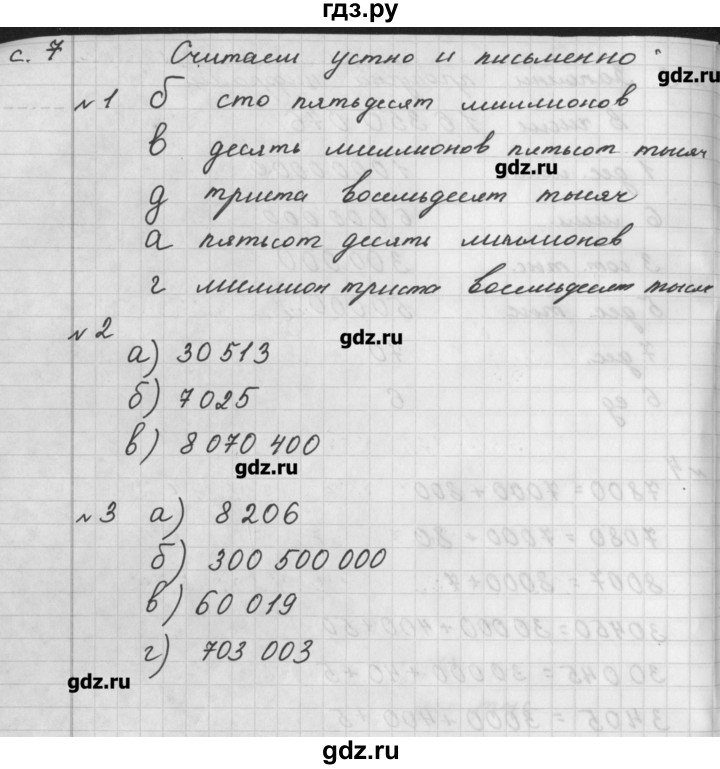 гдз.ру
с. 7 Считаем устно и письменно
gdz.ru
№1 б сто пятьдесят миллионов
в десять миллионов пятьсот тысяч
gdz.ru
д триста восемьдесят тысяч
а пятьсот десять миллионов
г миллион триста восемьдесят тысяч
№2
gdz.ru
а) 30 513
б) 7 025
в) 8 070 400
gdz.ru
№3 а) 8 206
б) 300 500 000
gdz.ru
в) 60 019
г) 703 003
gdz.ru
gdz.ru